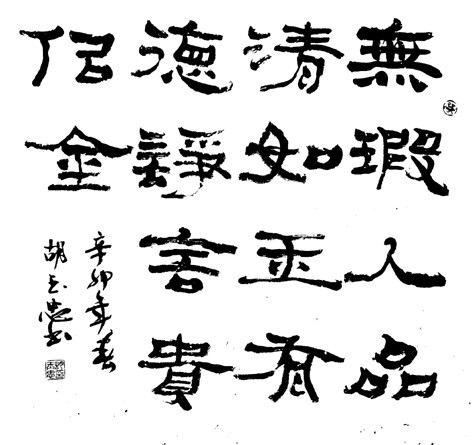 無瑕人品
清如玉有
德諍言貴
佀金
辛卯年春
胡玉忠书